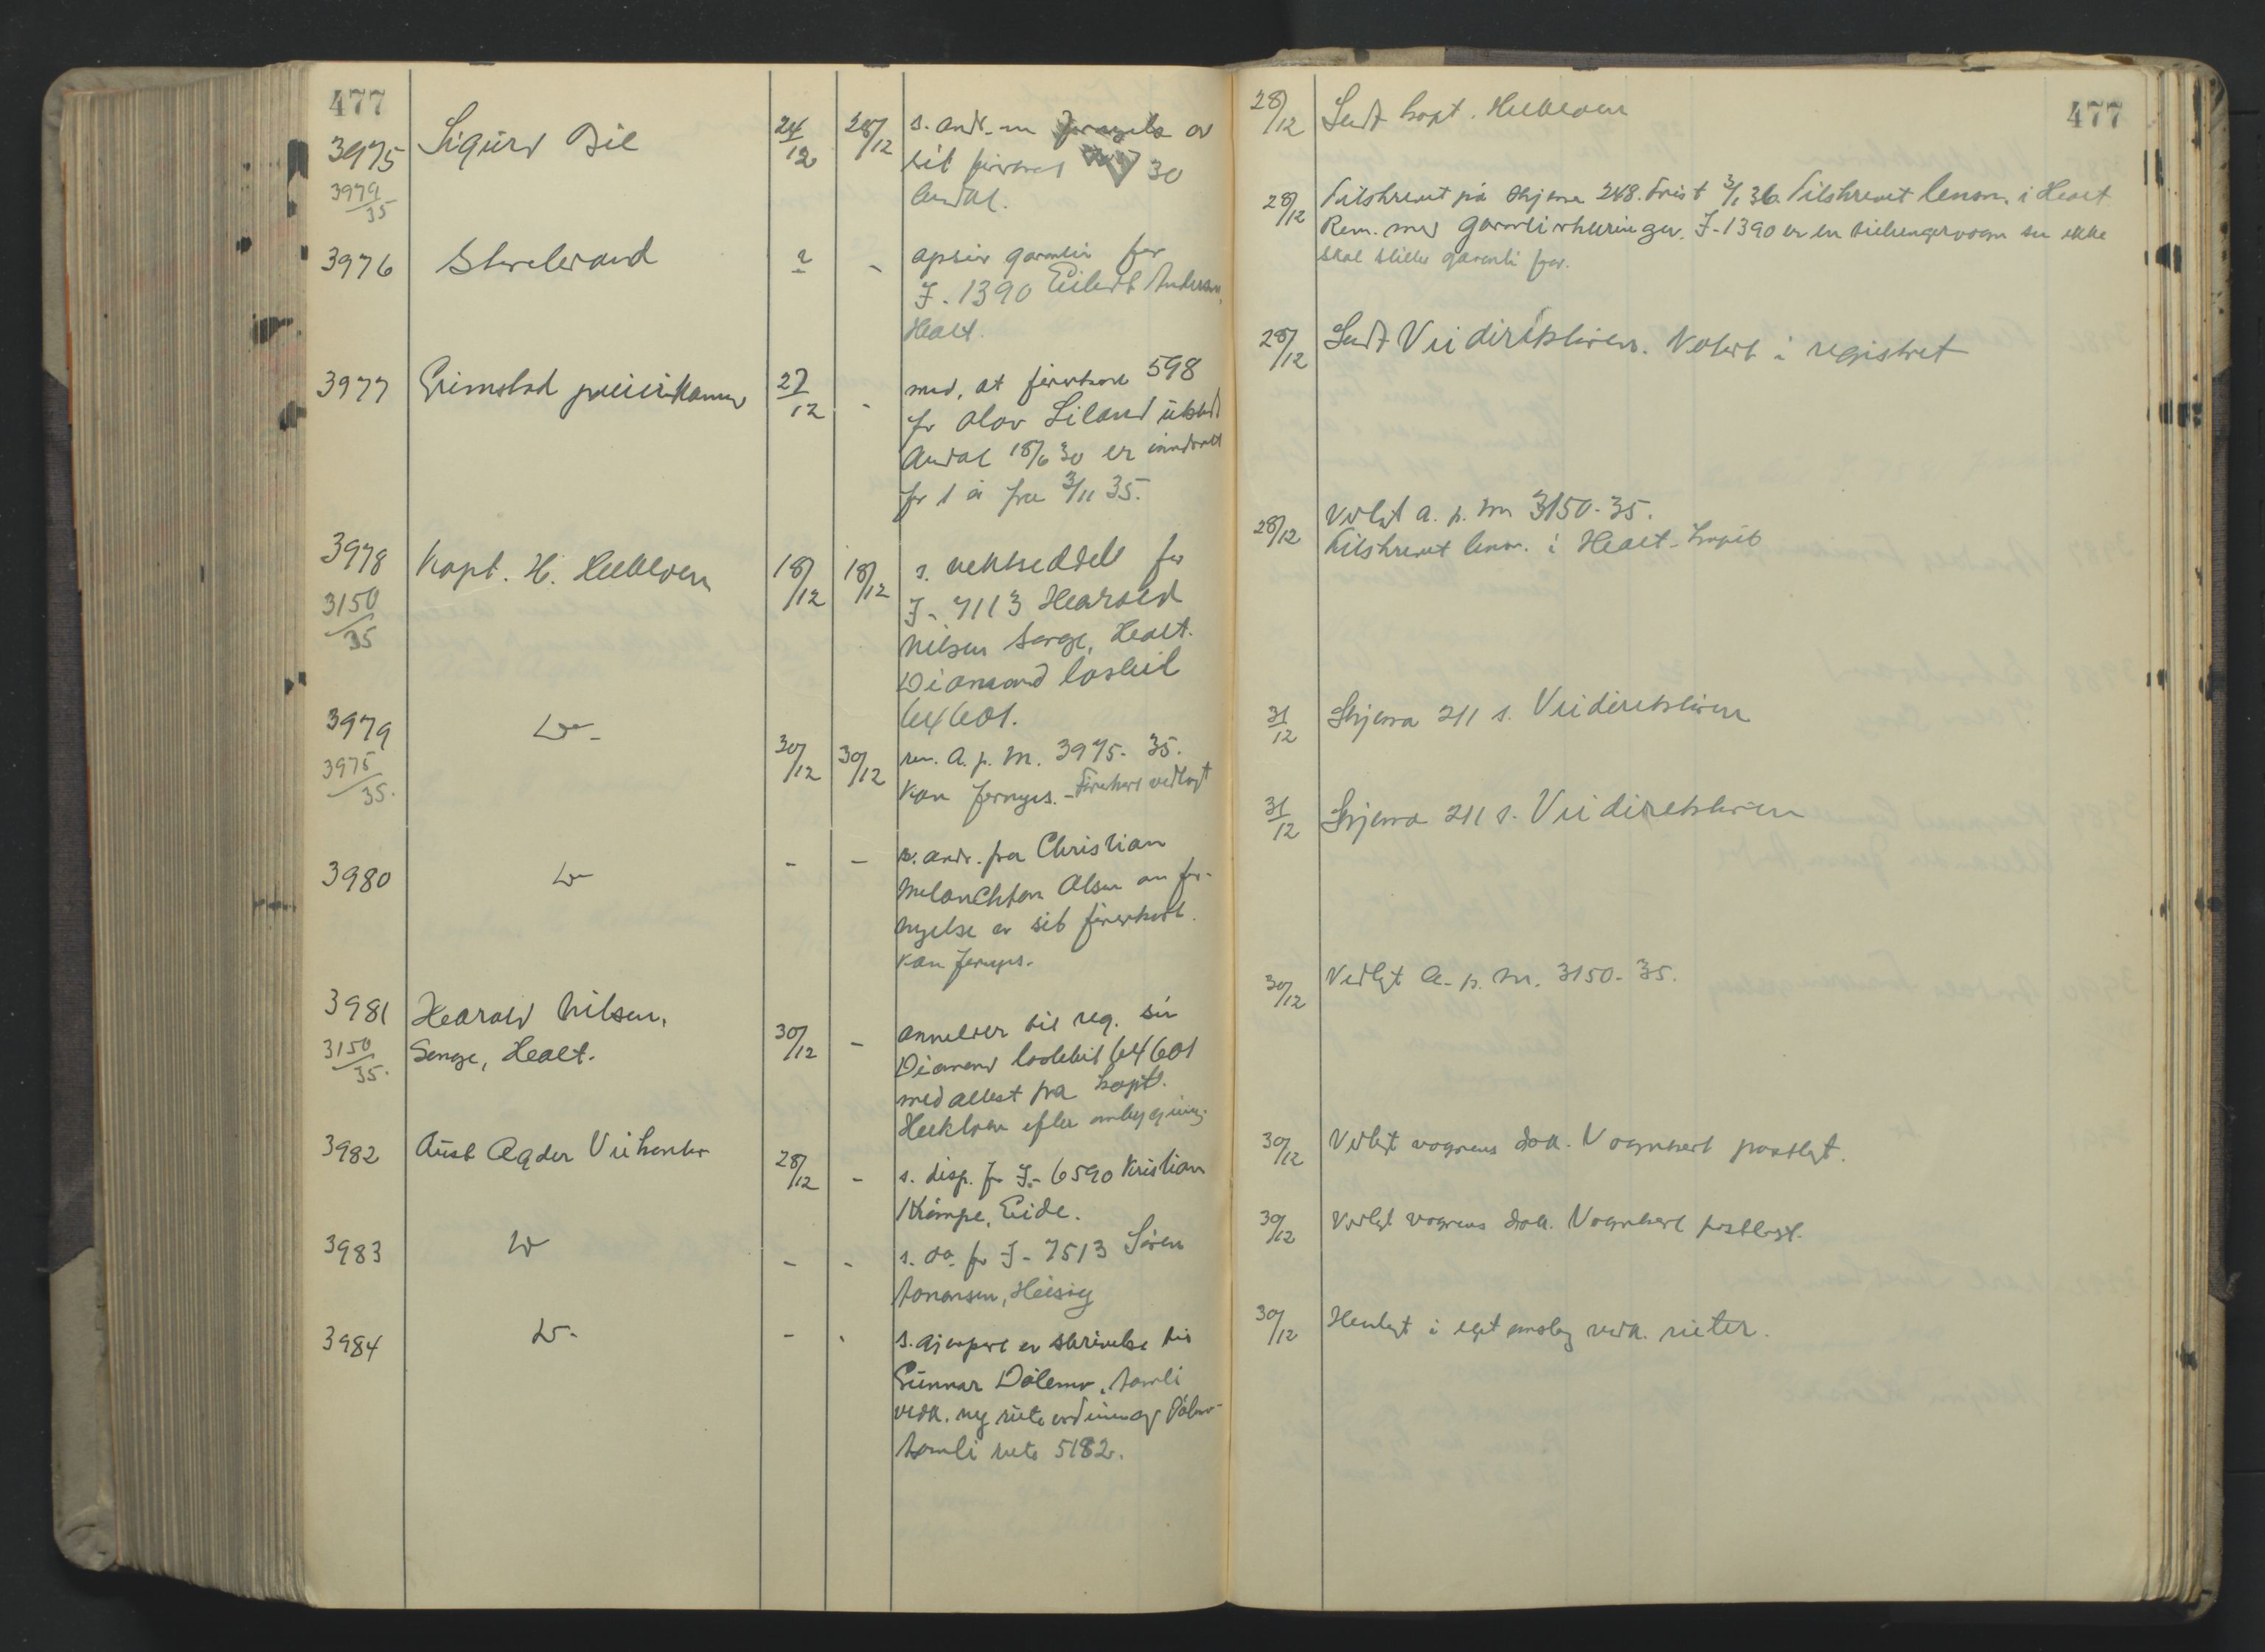 477
3975
3979
35
Sigurd
24/12
28/12
s. and. om fornyelse av
sit førerkort 30
Arendal.
3976
Storebrand
2
-
opsier garantien for
J. 1390 Eilert Andersen,
Holt.
3977
Grimstad politikammer
27/12
-
med. at førerkort 598
for Olav Liland utstedt
Arendal 18/6 30 er inndradd
for 1 år fra 3/11 35.
3978
3150
35
Kapt. H. Heckloen
18/12
18/12
s. vektseddel for
J - 7113 Harald
Nilsen Songe, Holt.
Diamond lastebil
64601.
3979
3975
35.
Do -
30/12
30/12
ret. A. p. m. 3975 - 35.
Kan fornyes. - Førerkort vedlagt
3980
Do
-
-
s. and. fra Christian
Melanchton Olsen om for-
nyelse av sit førerkort.
Kan fornyes.
3981
3150
35.
Harald Nilsen,
Songe, Holt.
30/12
-
anmelder til reg. sin
Diamond lastebil 64601
med attest fra kapt.
Heckloen efter ombygging.
3982
Aust Agder Veikontor
28/12
-
s. disp. for J - 6590 Kristian
Kimpe, Eide.
3983
Do
-
-
s. do. for J - 7513 Søren
Aanonsen, Heisvig
3984
Do -
-
-
s. gjenpart av skrivelse til
Gunnar Dølemo, Åmli
vedk. ny ruteordning Dølemo -
Åmli rute 5182.
477
28/12
Sendt kapt. Heckloen
28/12
Tilskrevet på skjema 248. Frist 3/1 36. Tilskrevet lensm. i Holt
Rem. med garantierklæringer. J - 1390 er en tilhengervogn som ikke
skal stilles garanti for.
28/12
Sendt Veidirektøren. Notert i registret
28/12
Vedlagt a. p. m. 3150 - 35.
Tilskrevet lensm. i Holt - kopi
31/12
Skjema 211 s. Veidirektøren
31/12
Skjema 211 s. Veidirektøren
30/12
Vedlagt a. p. m. 3150 - 35.
30/12
Vedlagt vognens dok. Vognkort postlagt.
30/12
Vedlagt vognens dok. Vognkort postlagt.
30/12
Henlagt i eget omslag vedk. ruter.